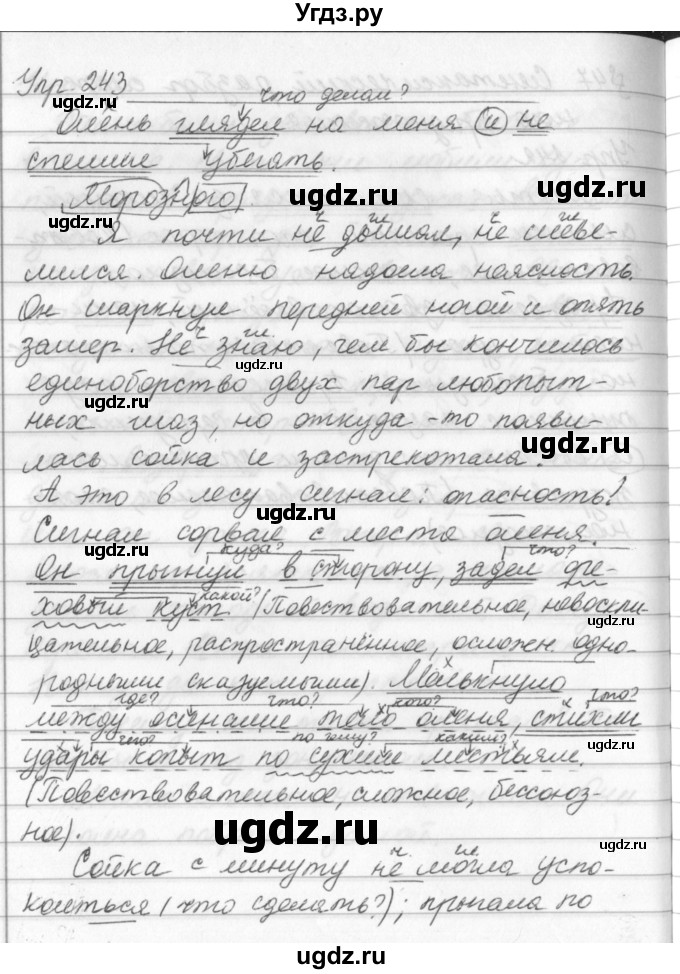 Угдз.ру
Упр. 243
что делал?
Олень глядел на меня и не
спешил убегать.
Морозн[ого].
ч. гл. ч. гл.
Я почти не дышал, не шеве-
лился. Оленю надоела неясность.
Он шаркнул передней ногой и опять
ч. гл.
замер. Не знаю, чем бы кончилось
единоборство двух пар любопыт-
ных глаз, но откуда-то появи-
лась сойка и застрекотала.
А это в лесу сигнал: опасность!
Сигнал сорвал с места оленя.
куда? что?
Он прыгнул в сторону, задел оре-
какой?
ховый куст (Повествовательное, невоскли-
цательное, распространённое, осложн. одно-
родными сказуемыми). Мелькнуло
где? что? кого? что?
между осинами тело оленя, стихли
чего? по чему? каким?
удары копыт по сухим листьям.
(Повествовательное, сложное, бессоюз-
ное).
ч. гл.
Сойка с минуту не могла успо-
коиться (что сделать?); прыгала по
ugdz.ru
ugdz.ru
ugdz.ru
ugdz.ru
ugdz.ru
ugdz.ru
ugdz.ru
ugdz.ru
ugdz.ru
ugdz.ru
ugdz.ru
ugdz.ru
ugdz.ru
ugdz.ru
Угдз.ру